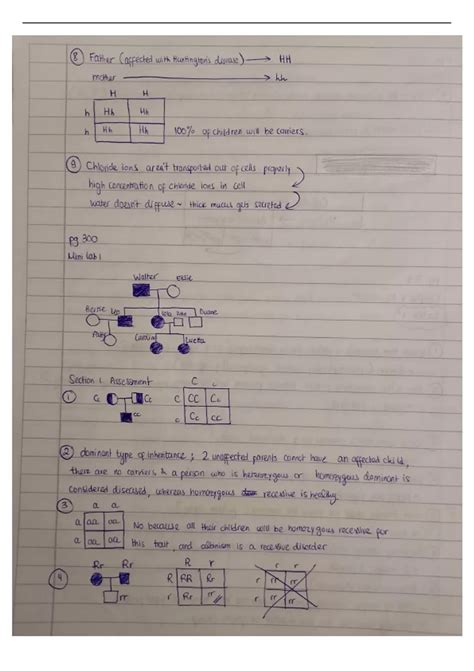 8 Father (affected with Huntington's disease) → HH
mother → hh
H H
h Hh Hh
h Hh Hh 100% of children will be carriers.
9 Chloride ions aren't transported out of cells properly
high concentration of chloride ions in cell
water doesn't diffuse ~ thick mucus gets secreted
pg 300
Mini lab 1
Walter Elsie
Bernie Leo Lola Duane
Carmina Luetta
Section 1 Assessment
C c
1 Cc Cc C CC Cc
cc c Cc cc
2 dominant type of inheritance; 2 unaffected parents cannot have an affected child,
there are no carriers, & a person who is heterozygous or homozygous dominant is
considered diseased, whereas homozygous recessive is healthy
3 a a
a aa aa No because all their children will be homozygous recessive for
a aa aa this trait, and albinism is a recessive disorder
4 Rr Rr R r r r
R RR Rr r rr rr
rr r Rr rr r rr rr